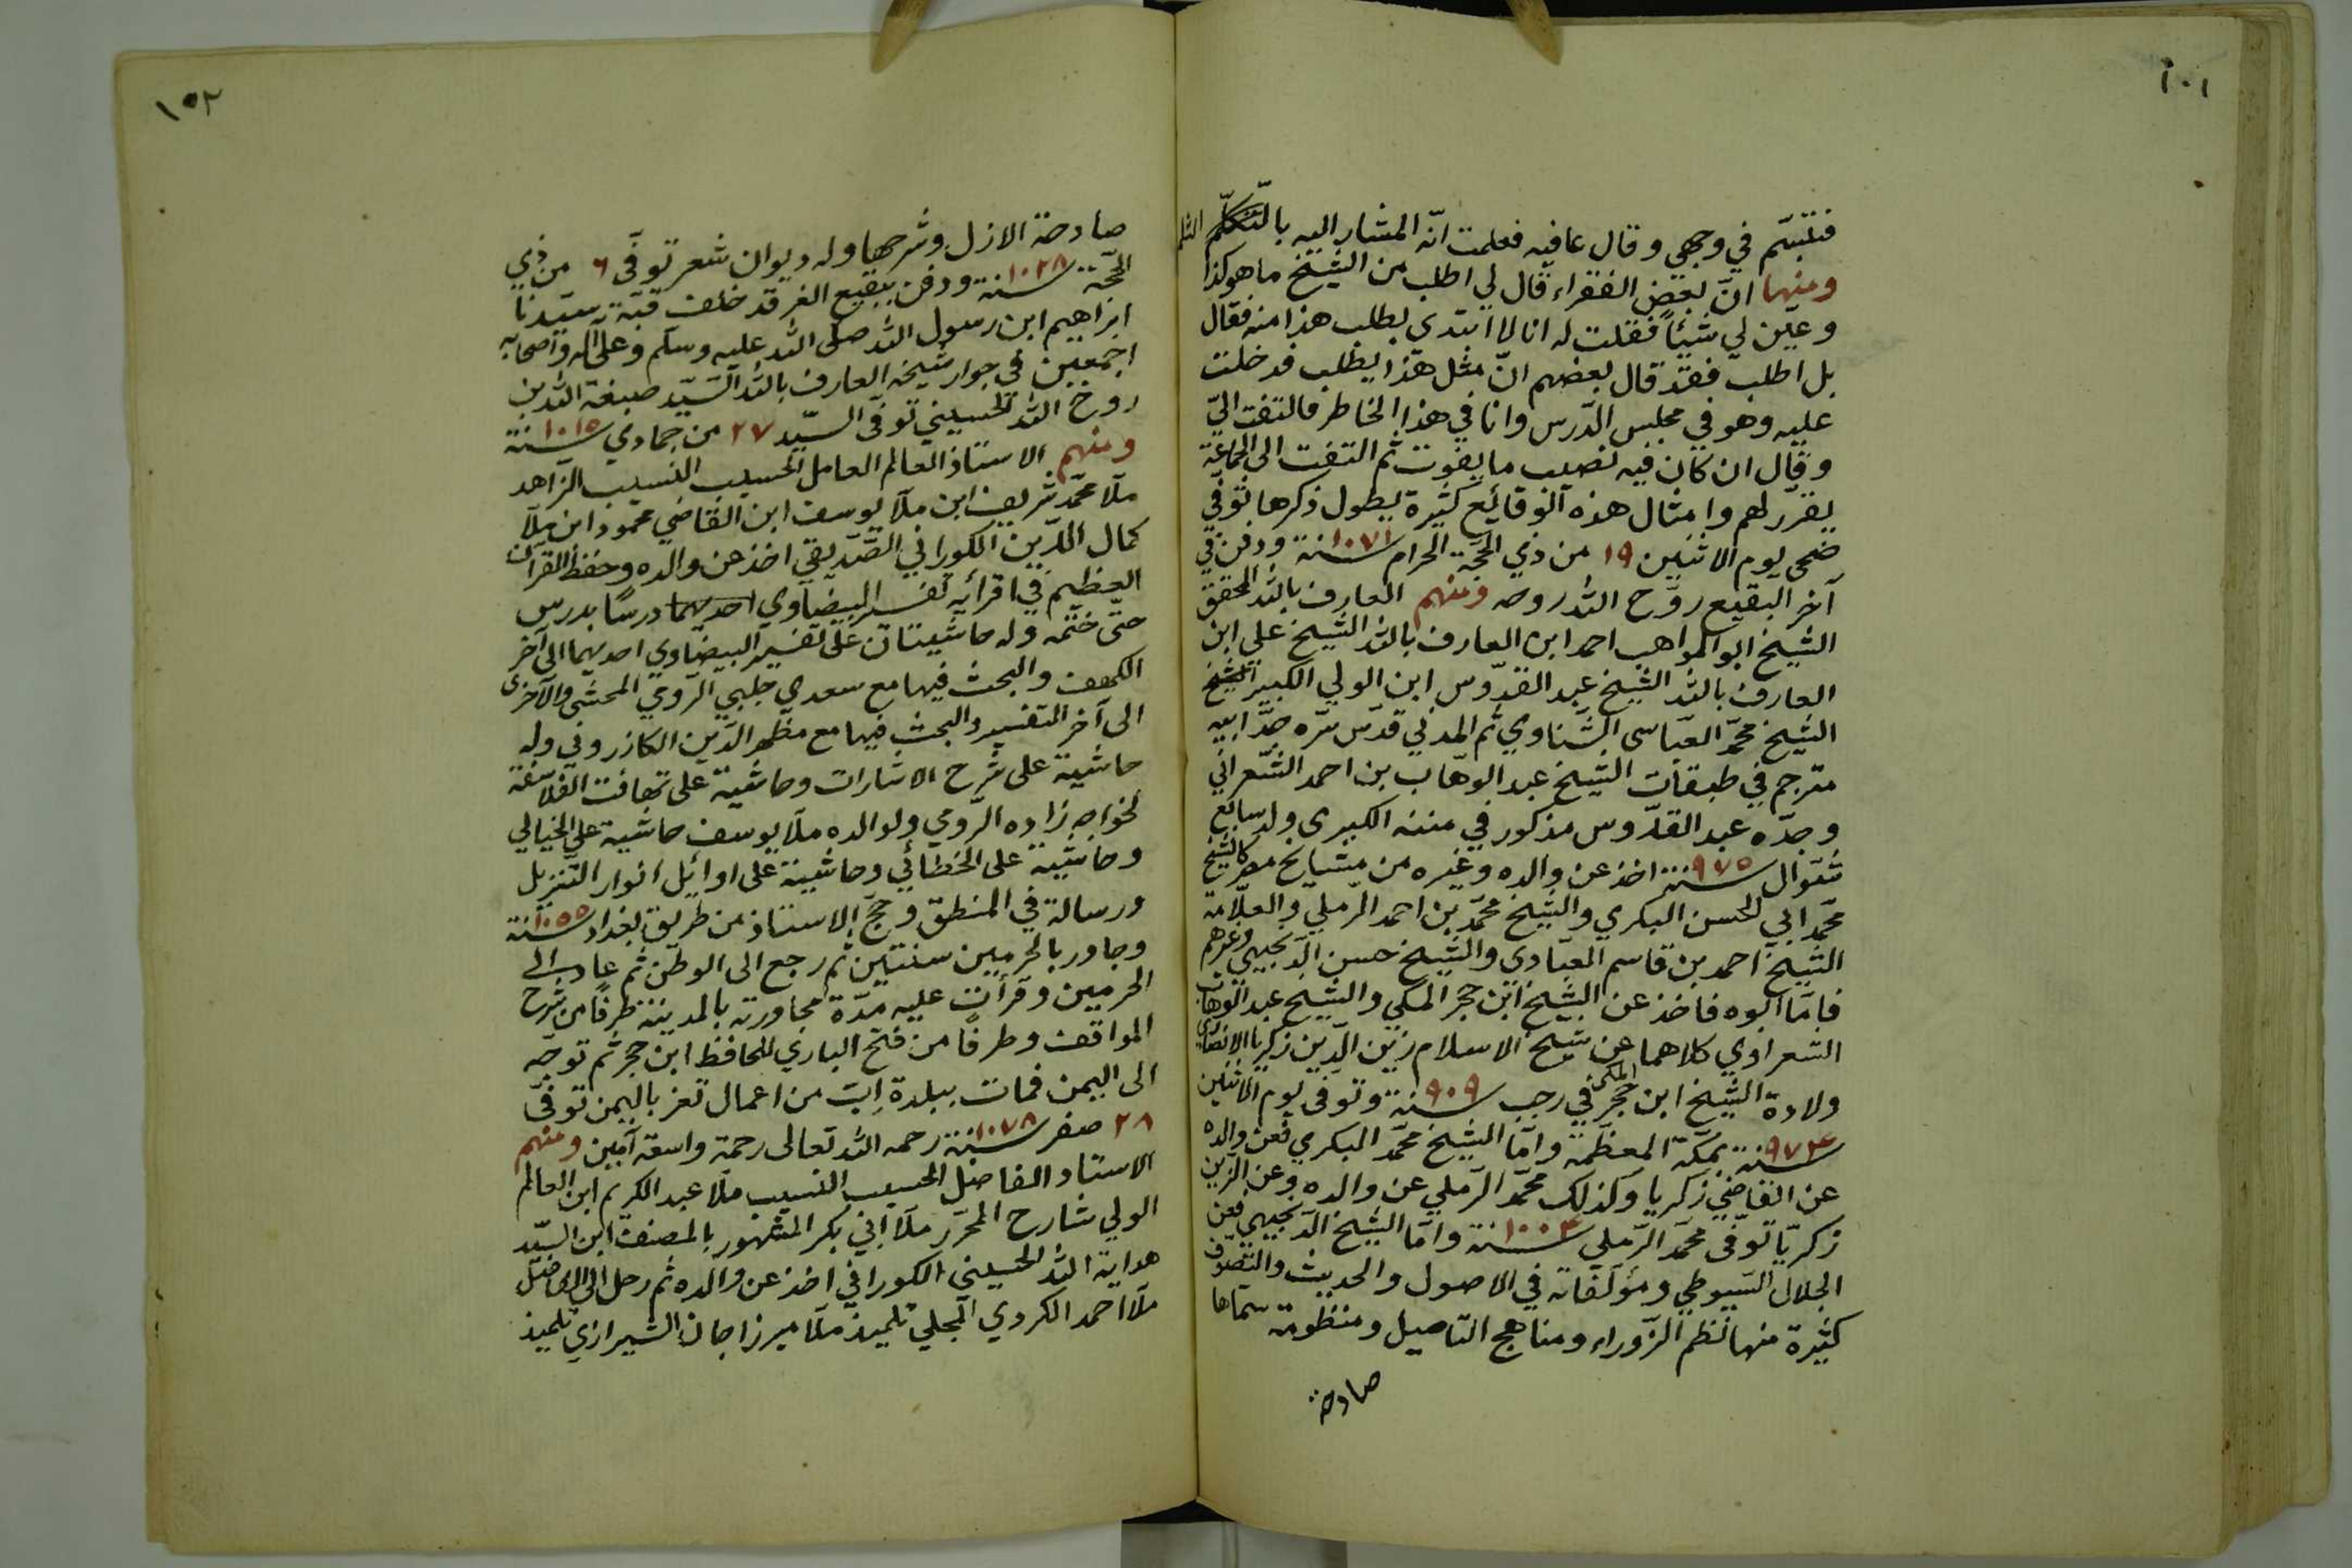 ١٠١
فتبسّم في وجهي وقال عافيه فعلمت انّه المشار اليه بالتكلّم
ومنها انّ بعض الفقراء قال لي اطلب من الشيخ ما هو كذا
وعيّن لي شيئاً فقلت له انا لا ابتدى بطلب هذا منه فقال
بل اطلب فقد قال بعضهم انّ مثل هذا يطلب فدخلت
عليه وهو في مجلس الدّرس وانا في هذا الخاطر فالتفت اليّ
وقال ان كان فيه نصيب ما يفوت ثم التفت الى الجماعة
يقرّر لهم وامثال هذه الوقائع كثيرة يطول ذكرها توفي
ضحى يوم الاثنين ١٩ من ذي الحجّة الحرام سنة ١٠٧١ ودفن في
آخر البقيع روّح الله روحه ومنهم العارف بالله المحقق
الشيخ ابو المواهب احمد ابن العارف بالله الشيخ على ابن
العارف بالله الشيخ عبد القدّوس ابن الولي الكبير الشيخ
الشيخ محمّد العبّاسى الشّناوي ثم المدني قدّس سرّه جدّ ابيه
مترجم في طبقات الشيخ عبد الوهّاب بن احمد الشّعراني
وجدّه عبد القدّوس مذكور في مننه الكبرى ولد سابع
شوّال سنة ٩٧٥ اخذ عن والده وغيره من مشايخ مصر كالشيخ
محمّد ابي الحسن البكري والشيخ محمّد بن احمد الرّملي والعلّامة
الشيخ احمد بن قاسم العبّادي والشيخ حسن الدّنجيهي وغيرهم
فامّا ابوه فاخذ عن الشيخ ابن حجر المكي والشيخ عبد الوهّاب
الشعراوي كلاهما عن شيخ الاسلام زين الدّين زكريا الانصاري
ولادة الشيخ ابن حجر المكي في رجب سنة ٩٠٩ وتوفى يوم الاثنين
سنة ٩٧٤ بمكّة المعظّمة وامّا الشيخ محمّد البكري فعن والده
عن القاضي زكريا وكذلك محمّد الرّملي عن والده وعن الزين
زكريّا توفّى محمّد الرّملي سنة ١٠٠٤ وامّا الشيخ الدّنجيهي فعن
الجلال السّيوطي ومؤلّفاته في الاصول والحديث والتصوّف
كثيرة منها نظم الزّوراء ومناهج التاصيل ومنظومة سمّاها
صادحة
١٥٢
صادحة الازل وشرحها وله ديوان شعر توفّى ٦ من ذي
الحجّة سنة ١٠٢٨ ودفن ببقيع الغرقد خلف قبّة سيّدنا
ابراهيم ابن رسول الله صلى الله عليه وسلم وعلى آله واصحابه
اجمعين في جوار شيخه العارف بالله السّيّد صبغة الله بن
روح الله الحسيني توفّى السّيّد ٢٧ من جمادي سنة ١٠١٥
ومنهم الاستاذ العالم العامل الحسيب النسيب الزّاهد
ملّا محمّد شريف ابن ملّا يوسف ابن القاضي محمود ابن ملّا
كمال الدّين الكوراني الصّدّيقي اخذ عن والده وحفظ القرآن
العظيم في اقرائه تفسير البيضاوي احديهما درسًا بدرس
حتّى ختمه وله حاشيتان على تفسير البيضاوي احديهما الى آخر
الكهف والبحث فيها مع سعدي جلبي الرّومي المحشى والآخرى
الى آخر التفسير والبحث فيها مع مظهر الدّين الكازروني وله
حاشية على شرح الاشارات وحاشية على تهافت الفلاسفة
لخواجه زاده الرّومي ولوالده ملّا يوسف حاشية على الخيالي
وحاشية على الخطائي وحاشية على اوائل انوار التّنزيل
ورسالة في المنطق وحجّ الاستاذ من طريق بغداد سنة ١٠٥٥
وجاور بالحرمين سنتين ثم رجع الى الوطن ثم عاد الى
الحرمين وقرأت عليه مدّة مجاورته بالمدينة طرفًا من شرح
المواقف وطرفًا من فتح الباري للحافظ ابن حجر ثم توجّه
الى اليمن فمات ببلدة اِبّ من اعمال تعز باليمن توفّى
٢٨ صفر سنة ١٠٧٨ رحمه الله تعالى رحمة واسعة آمين ومنهم
الاستاد الفاضل الحسيب النسيب ملّا عبد الكريم ابن العالم
الولي شارح المحرّر ملّا ابي بكر المشهور بالمصنف ابن السّيّد
هداية الله الحسيني الكوراني اخذ عن والده ثم رحل الى الفاضل
ملّا احمد الكردي المجلي تلميذ ملّا ميرزا جان الشيرازي تلميذ